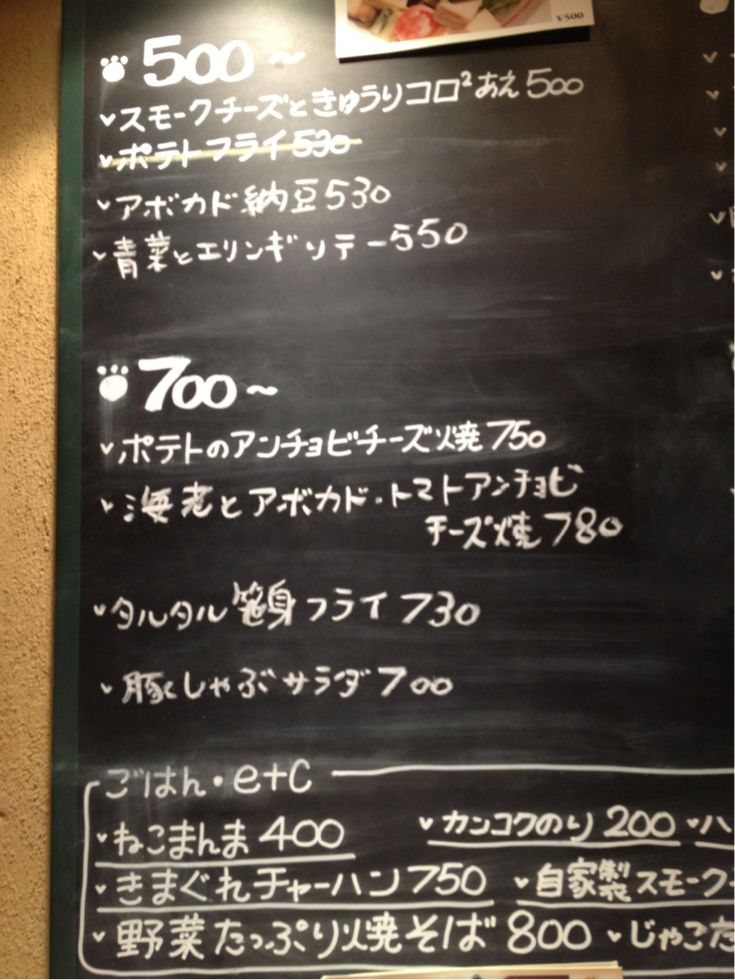 ¥500
500~
スモークチーズときゅうりコロ²あえ500
ポテトフライ530
アボカド納豆530
青菜とエリンギソテー550
700~
ポテトのアンチョビチーズ焼750
海老とアボカド・トマトアンチョビ
チーズ焼780
タルタル笹身フライ730
豚しゃぶサラダ700
ごはん・etc
ねこまんま400 カンコクのり200 ハ
きまぐれチャーハン750 自家製スモーク
野菜たっぷり焼そば800 じゃこ